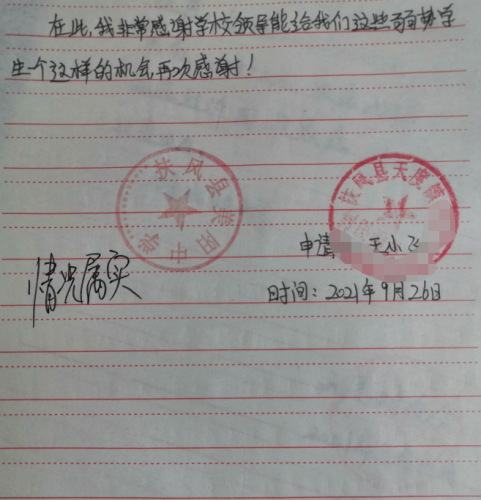 在此,我非常感谢学校领导能给我们这些弱势学
生个这样的机会,再次感谢!
扶风县
阳中学
扶风县天度
申请
王小
情况属实
时间:2021年9月26日